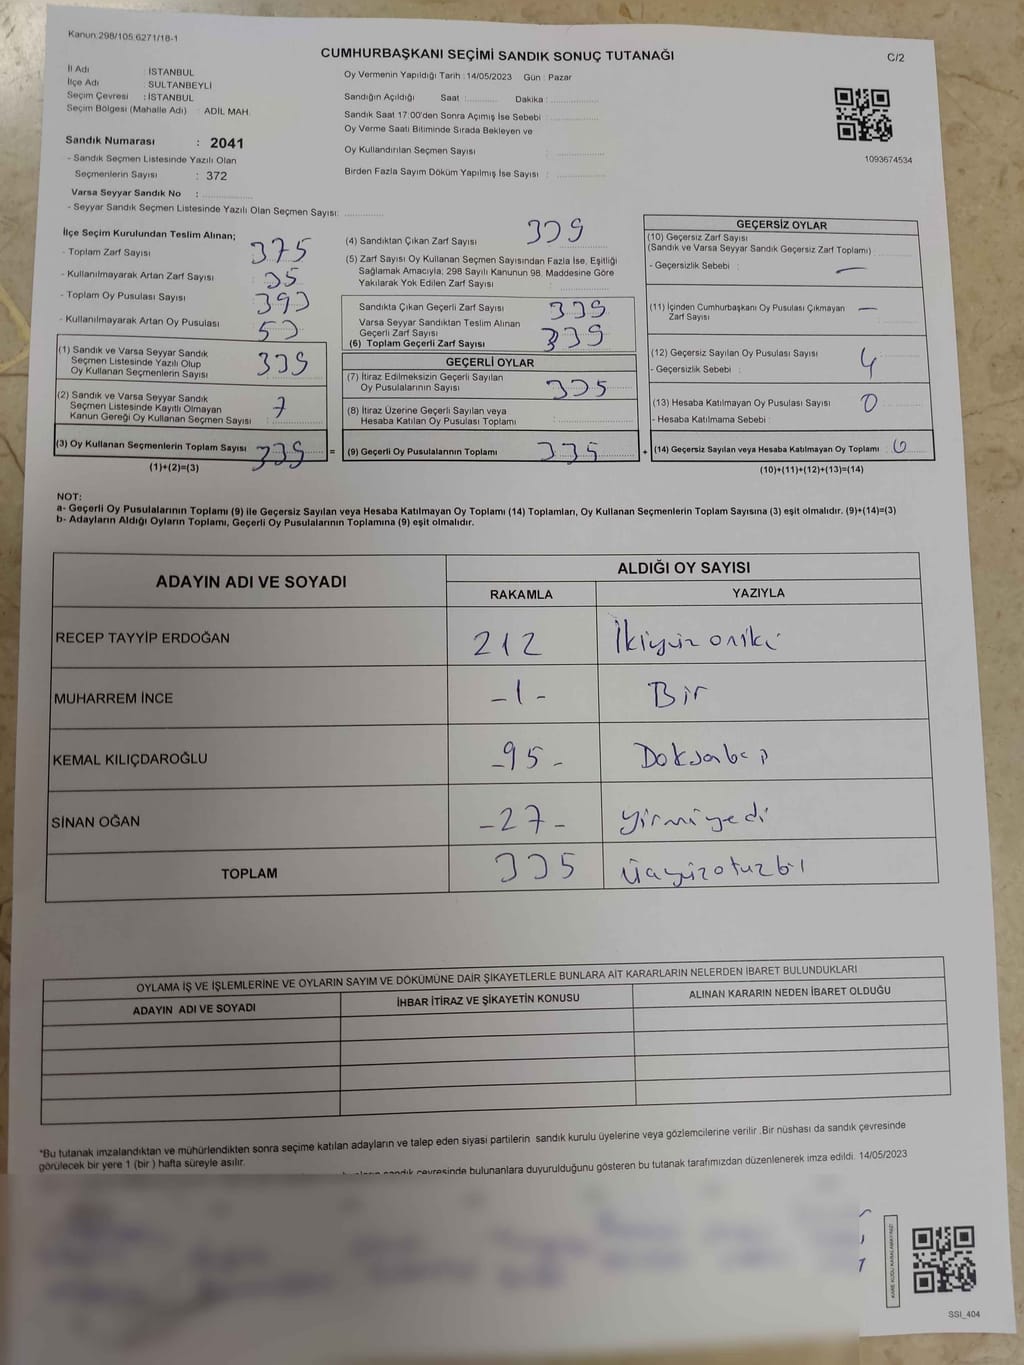 Kanun:298/105,6271/18-1
CUMHURBAŞKANI SEÇİMİ SANDIK SONUÇ TUTANAĞI
C/2
İl Adı : İSTANBUL
İlçe Adı : SULTANBEYLİ
Seçim Çevresi : İSTANBUL
Seçim Bölgesi (Mahalle Adı) : ADİL MAH.
Sandık Numarası : 2041
- Sandık Seçmen Listesinde Yazılı Olan
Seçmenlerin Sayısı : 372
Varsa Seyyar Sandık No :
- Seyyar Sandık Seçmen Listesinde Yazılı Olan Seçmen Sayısı:
Oy Vermenin Yapıldığı Tarih :14/05/2023 Gün : Pazar
Sandığın Açıldığı Saat : Dakika :
Sandık Saat 17:00'den Sonra Açımış İse Sebebi :
Oy Verme Saati Bitiminde Sırada Bekleyen ve
Oy Kullandırılan Seçmen Sayısı :
Birden Fazla Sayım Döküm Yapılmış İse Sayısı :
1093674534
İlçe Seçim Kurulundan Teslim Alınan;
- Toplam Zarf Sayısı : 375
- Kullanılmayarak Artan Zarf Sayısı : 35
- Toplam Oy Pusulası Sayısı : 393
- Kullanılmayarak Artan Oy Pusulası : 53
(1) Sandık ve Varsa Seyyar Sandık
Seçmen Listesinde Yazılı Olup
Oy Kullanan Seçmenlerin Sayısı : 339
(2) Sandık ve Varsa Seyyar Sandık
Seçmen Listesinde Kayıtlı Olmayan
Kanun Gereği Oy Kullanan Seçmen Sayısı :
(3) Oy Kullanan Seçmenlerin Toplam Sayısı : 339 =
(1)+(2)=(3)
(4) Sandıktan Çıkan Zarf Sayısı : 339
(5) Zarf Sayısı Oy Kullanan Seçmen Sayısından Fazla İse, Eşitliği
Sağlamak Amacıyla; 298 Sayılı Kanunun 98. Maddesine Göre
Yakılarak Yok Edilen Zarf Sayısı :
Sandıkta Çıkan Geçerli Zarf Sayısı : 339
Varsa Seyyar Sandıktan Teslim Alınan
Geçerli Zarf Sayısı :
(6) Toplam Geçerli Zarf Sayısı : 339
GEÇERLİ OYLAR
(7) İtiraz Edilmeksizin Geçerli Sayılan
Oy Pusulalarının Sayısı : 335
(8) İtiraz Üzerine Geçerli Sayılan veya
Hesaba Katılan Oy Pusulası Toplamı :
(9) Geçerli Oy Pusulalarının Toplamı : 335 +
GEÇERSİZ OYLAR
(10) Geçersiz Zarf Sayısı
(Sandık ve Varsa Seyyar Sandık Geçersiz Zarf Toplamı) :
- Geçersizlik Sebebi : —
(11) İçinden Cumhurbaşkanı Oy Pusulası Çıkmayan —
Zarf Sayısı
(12) Geçersiz Sayılan Oy Pusulası Sayısı : 4
- Geçersizlik Sebebi :
(13) Hesaba Katılmayan Oy Pusulası Sayısı : 0
- Hesaba Katılmama Sebebi :
(14) Geçersiz Sayılan veya Hesaba Katılmayan Oy Toplamı :
(10)+(11)+(12)+(13)=(14)
NOT:
a- Geçerli Oy Pusulalarının Toplamı (9) ile Geçersiz Sayılan veya Hesaba Katılmayan Oy Toplamı (14) Toplamları, Oy Kullanan Seçmenlerin Toplam Sayısına (3) eşit olmalıdır. (9)+(14)=(3)
b- Adayların Aldığı Oyların Toplamı, Geçerli Oy Pusulalarının Toplamına (9) eşit olmalıdır.
ADAYIN ADI VE SOYADI
ALDIĞI OY SAYISI
RAKAMLA YAZIYLA
RECEP TAYYİP ERDOĞAN 212 İkiyüz oniki
MUHARREM İNCE -1- Bir
KEMAL KILIÇDAROĞLU -95- Doksabeş
SİNAN OĞAN -27- yirmiyedi
TOPLAM 335
OYLAMA İŞ VE İŞLEMLERİNE VE OYLARIN SAYIM VE DÖKÜMÜNE DAİR ŞİKAYETLERLE BUNLARA AİT KARARLARIN NELERDEN İBARET BULUNDUKLARI
ADAYIN ADI VE SOYADI İHBAR İTİRAZ VE ŞİKAYETİN KONUSU ALINAN KARARIN NEDEN İBARET OLDUĞU
*Bu tutanak imzalandıktan ve mühürlendikten sonra seçime katılan adayların ve talep eden siyasi partilerin sandık kurulu üyelerine veya gözlemcilerine verilir .Bir nüshası da sandık çevresinde
görülecek bir yere 1 (bir ) hafta süreyle asılır.
sandık çevresinde bulunanlara duyurulduğunu gösteren bu tutanak tarafımızdan düzenlenerek imza edildi. 14/05/2023
SSI_404